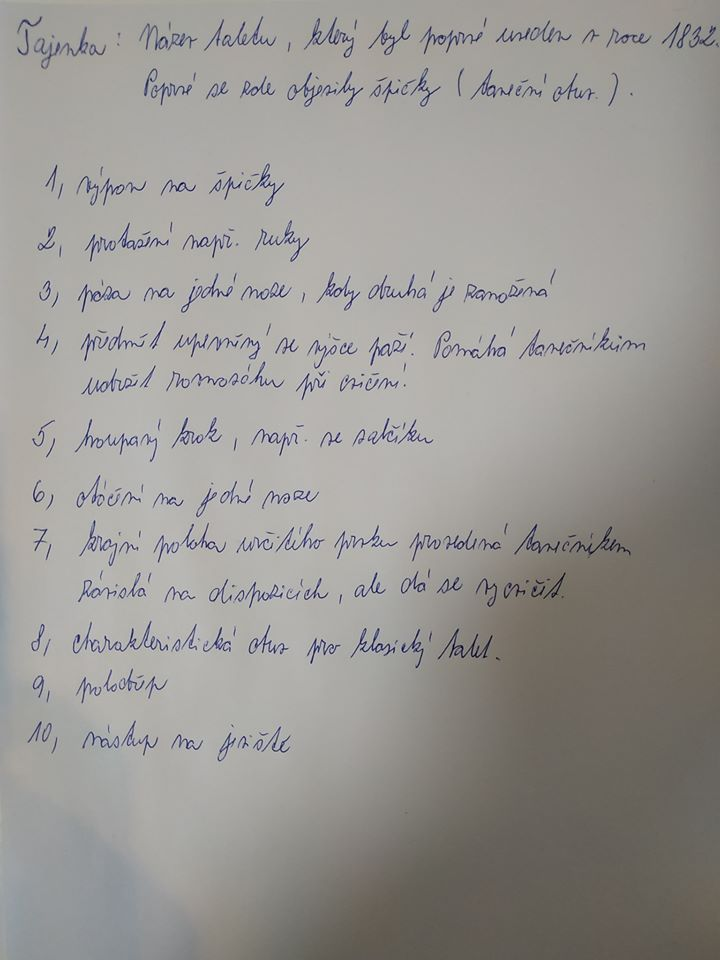 Tajenka: Název baletu, který byl poprvé uveden v roce 1832.
Poprvé se zde objevily špičky (taneční obuv.).
1, výpon na špičky
2, protažení např. ruky
3, póza na jedné noze, kdy druhá je zanožená
4, předmět upevněný ve výšce paží. Pomáhá tanečníkům
udržet rovnováhu při cvičení.
5, houpavý krok, např. ve valčíku
6, otočení na jedné noze
7, krajní poloha určitého prvku provedená tanečníkem
závislá na dispozicích, ale dá se vycvičit.
8, charakteristická obuv pro klasický balet.
9, podřep
10, nástup na jeviště